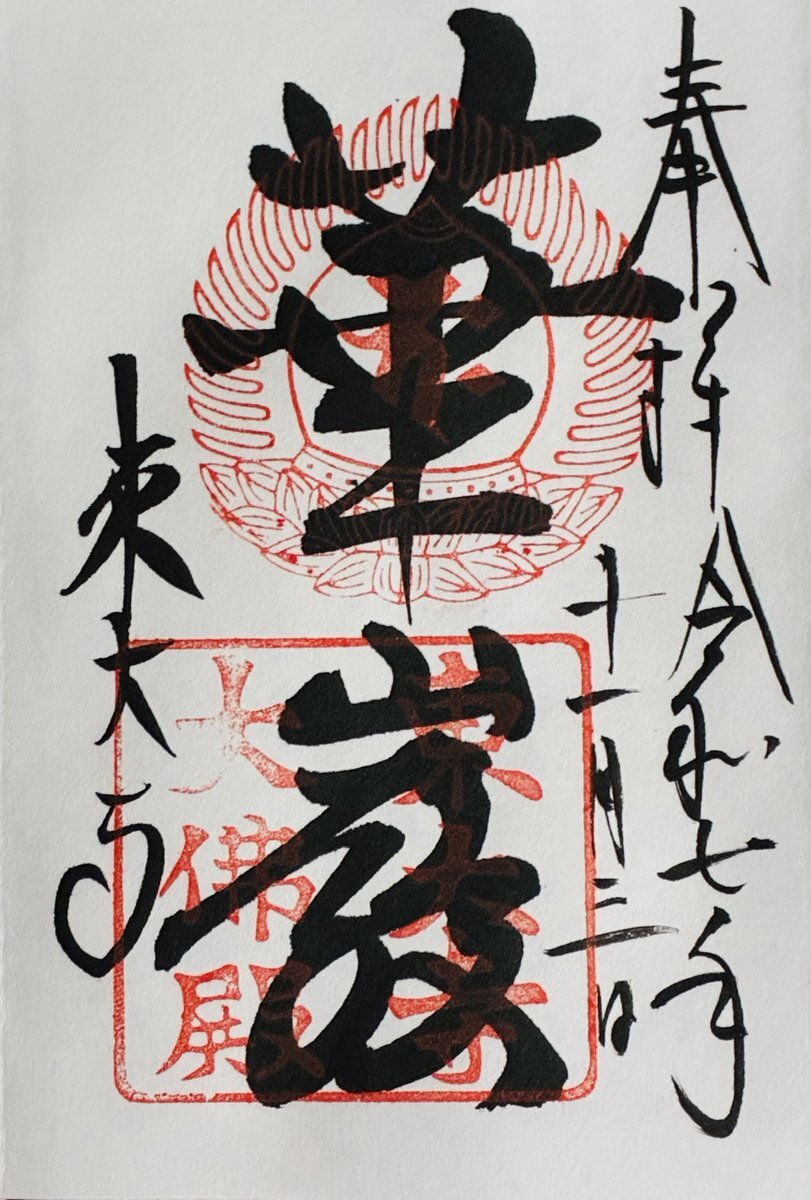 奉拝 令和七年
十一月三日
華厳
東大寺
東大寺
大佛殿